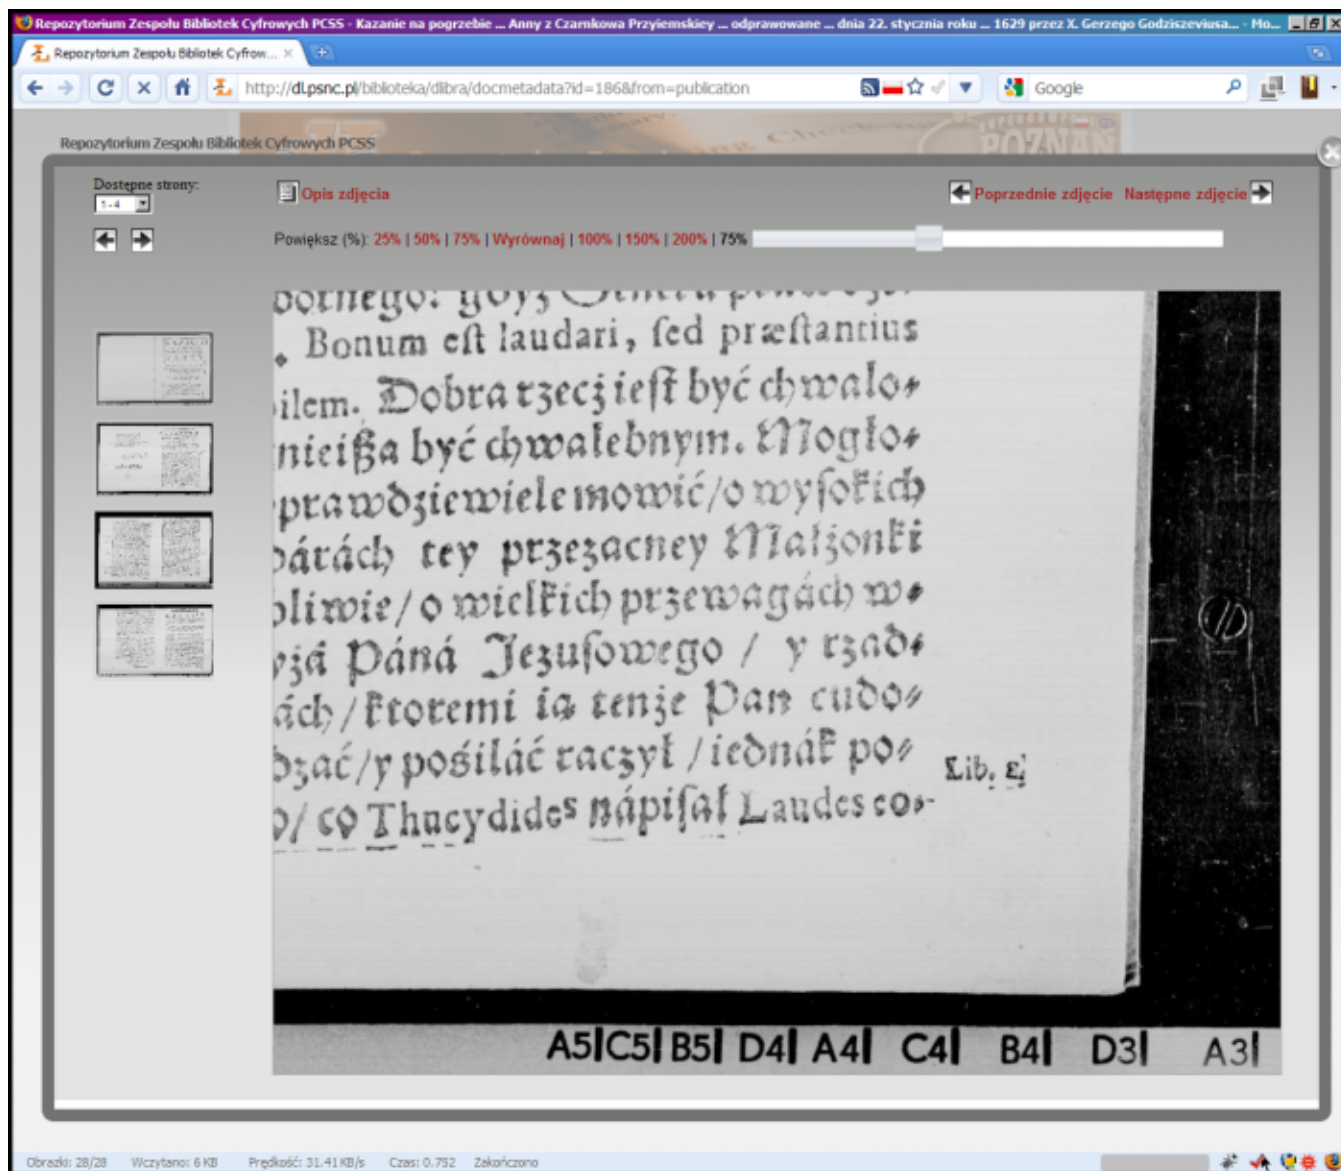 Repozytorium Zespołu Bibliotek Cyfrowych PCSS - Kazanie na pogrzebie ... Anny z Czarnkowa Przyiemskiey ... odprawowane ... dnia 22. stycznia roku ... 1629 przez X. Gerzego Godziszeviusa... - Mo...
Repozytorium Zespołu Bibliotek Cyfrow...
http://dl.psnc.pl/biblioteka/dlibra/docmetadata?id=186&from=publication
Google
POZNAŃ
Repozytorium Zespołu Bibliotek Cyfrowych PCSS
Dostępne strony:
1-4
Opis zdjęcia
Poprzednie zdjęcie Następne zdjęcie
Powiększ (%): 25% | 50% | 75% | Wyrównaj | 100% | 150% | 200% | 75%
Bonum eſt laudari, ſed præſtantius
ilem. Dobra rzecż ieſt być chwalo⸗
nieißa być chwalebnym. Mogło⸗
prawdziewiele mowić/o wyſokich
árách tey przezacney Małżonki
bliwie/o wielkich przewagách w⸗
yżá Páná Jezuſowego / y rząd⸗
ách/ktoremi ią tenże Pan cudo⸗
dzać/y pośiláć raczył/iednák po⸗
o/ co Thucydides nápiſał Laudes eo⸗
Lib. 2,
A5| C5| B5| D4| A4| C4| B4| D3| A3|
Obrazki: 28/28 Wczytano: 6 KB Prędkość: 31.41 KB/s Czas: 0.752 Zakończono